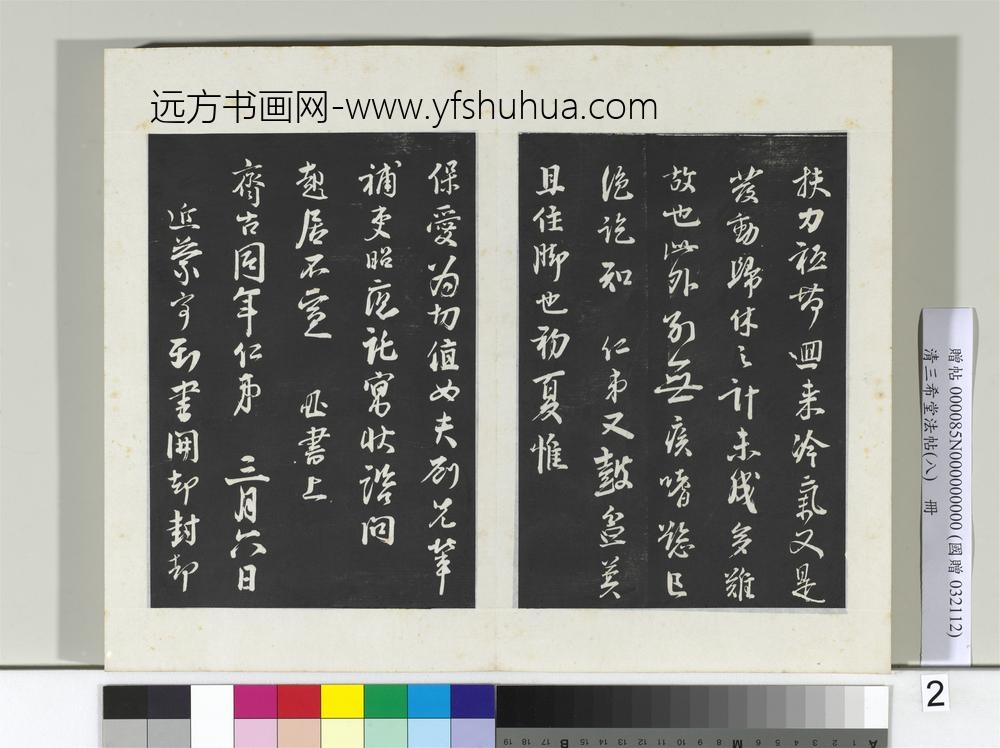 远方书画网-www.yfshuhua.com
扶力
回来冷氣又是
發動歸休之計未成多難
故也此外別無疾嗜慾已
絕訖知 仁弟又鼓盆莫
且住脚也初夏惟
保愛為切值女夫劉兄
補吏昭應託寓狀諮問
起居不宣 書上
齊古同年仁弟 三月六日
近蒙寄到書開却封却
贈帖 000085N000000000 (國贈 032112)
清三希堂法帖(八) 冊
2